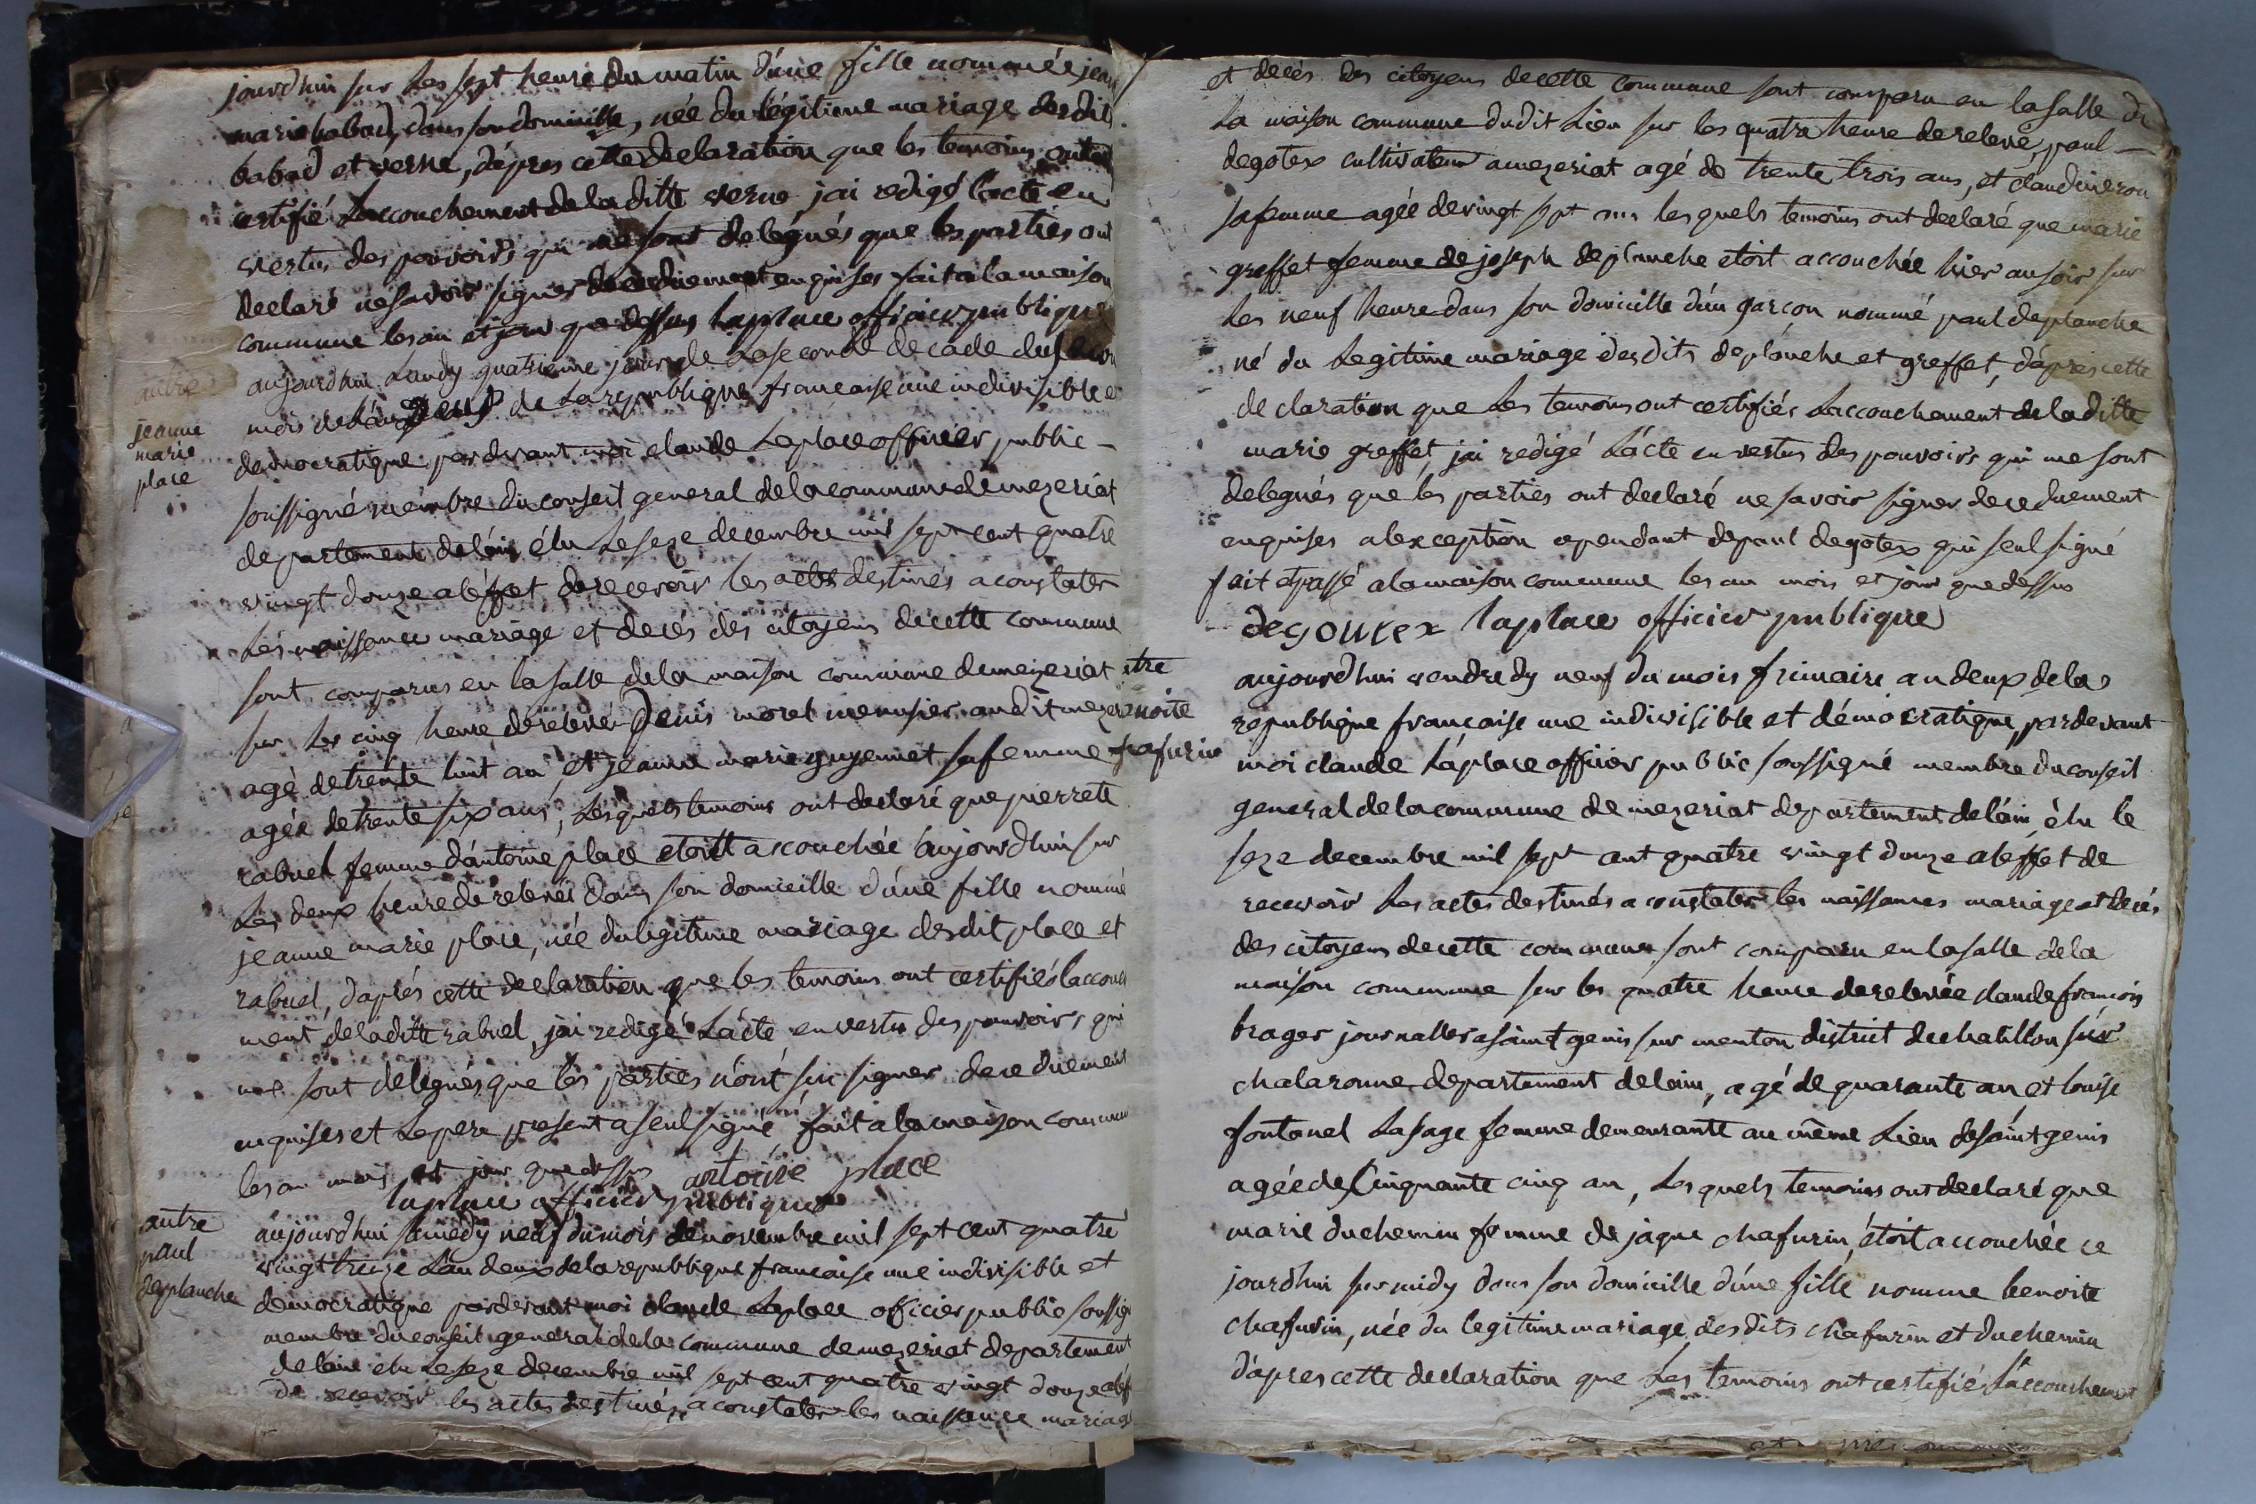 jourdhui sur les sept heure du matin d'une fille nommée jean
marie babad, dans son domicille, née du légitime mariage desdits
babad et verne, d'apres cette declaration que les temoins ont
certifié l'accouchement de la ditte verne, jai redigé l'acte en
vertus des pouvoirs qui me sont delegués que les parties ont
declaré ne savoir signer de ce duement enquises fait a la maison
commune les an et jour que dessus laplace officier publique
autre
jeanne
marie
place
aujourdhui lundy quatrieme jour de la seconde decade du
mois de l'an deux de la republique francaise une indivisible e
democratique pardevant moi claude Laplace officier public
soussigné membre du conseil general de la commune de mezeriat
departement de l'ain élu le seze decembre mil sept cent quatre
vingt douze a l'éffet de recevoir les actes destinés a constater
Les naissance mariage et decés des citoyens de cette commune
sont comparus en la salle de la maison commune de mezeriat
sur les cinq heure de relevée Denis morel menusier audit mezer
agé de trente huit an et jeanne marie guyennet sa femme
agée de trente six ans, lesquels temoins ont declaré que pierrette
rabuel femme d'antoine place etoitt accouchée aujourdhui sur
Les deux heure de relevés dans son domicille d'une fille nommé
jeanne marie place, née du legitime mariage desdit place et
rabuel, d'aprés cette declaration que les temoins ont certifiés laccouch
ment de la ditte rabuel, jai redigé L'acte en vertu des pouvoirs qui
me sont delegués que les parties n'ont su signer de ce duement
enquises et le pere present a seul signé fait a la maison commun
les an mois et jour que dessus antoine place
laplace officier publique
autre
paul
deplanche
aujourdhui samedy neuf du mois de novembre mil sept cent quatre
vingt treize l'an deux de la republique francaise une indivisible et
democratique pardevant moi claude Laplace officier public soussign
membre du conseil general de la commune de mezeriat departement
de l'ain élu le seze decembre mil sept cent quatre vingt douze a l'éf
de recevoir les actes destinés a constater les naissance mariage
et decés des citoyens de cette commune sont comparu en la salle de
La maison commune dudit Lieu sur les quatre heure de relevé, paul
degotex cultivateur a mezeriat agé de trente trois ans, et claudine
sa femme agée de vingt sept ans lesquels temoins ont declaré que marie
greffet femme de joseph deplanche etoit accouchée hier au soir sur
Les neuf heure dans son domicille d'un garçon nommé paul deplanche
né du Legitime mariage desdits deplanche et greffet, d'aprés cette
declaration que Les temoins ont certifiés Laccouchement de la ditte
marie greffet, jai redigé L'acte en vertus des pouvoirs qui me sont
delegués que les parties ont declaré ne savoir signer de ce duement
enquises a lexception cependant de paul degotex qui seul signé
fait et passé a la maison commune les an mois et jour que dessus
degoutex laplace officier publique
autre
benoite
chafurin
aujourdhui vendredy neuf du mois frimaire an deux de la
republique française une indivisible et démocratique, pardevant
moi claude Laplace officier public soussigné membre du conseil
general de la commune de mezeriat departement de l'ain élu le
seze decembre mil sept cent quatre vingt douze a l'effet de
recevoir les actes destinés a constater les naissances mariage et decés
des citoyens de cette commune sont comparu en la salle de la
maison commune sur les quatre heure de relevée claude francois
brager journallier a saint genis sur menton district de chatillon sur
chalaronne departement de l'ain, agé de quarante an et louise
fontanel La sage femme demeurante au même Lieu de saint genis
agée de Cinquante cinq an, Lesquels temoins ont declaré que
marie duchemin femme de jaque chafurin, étoit accouchée ce
jourdhui sur midy dans son domicille d'une fille nomme benoite
chafurin, née du legitime mariage desdits chafurin et duchemin
d'apres cette declaration que Les temoins ont certifié L'accouchement